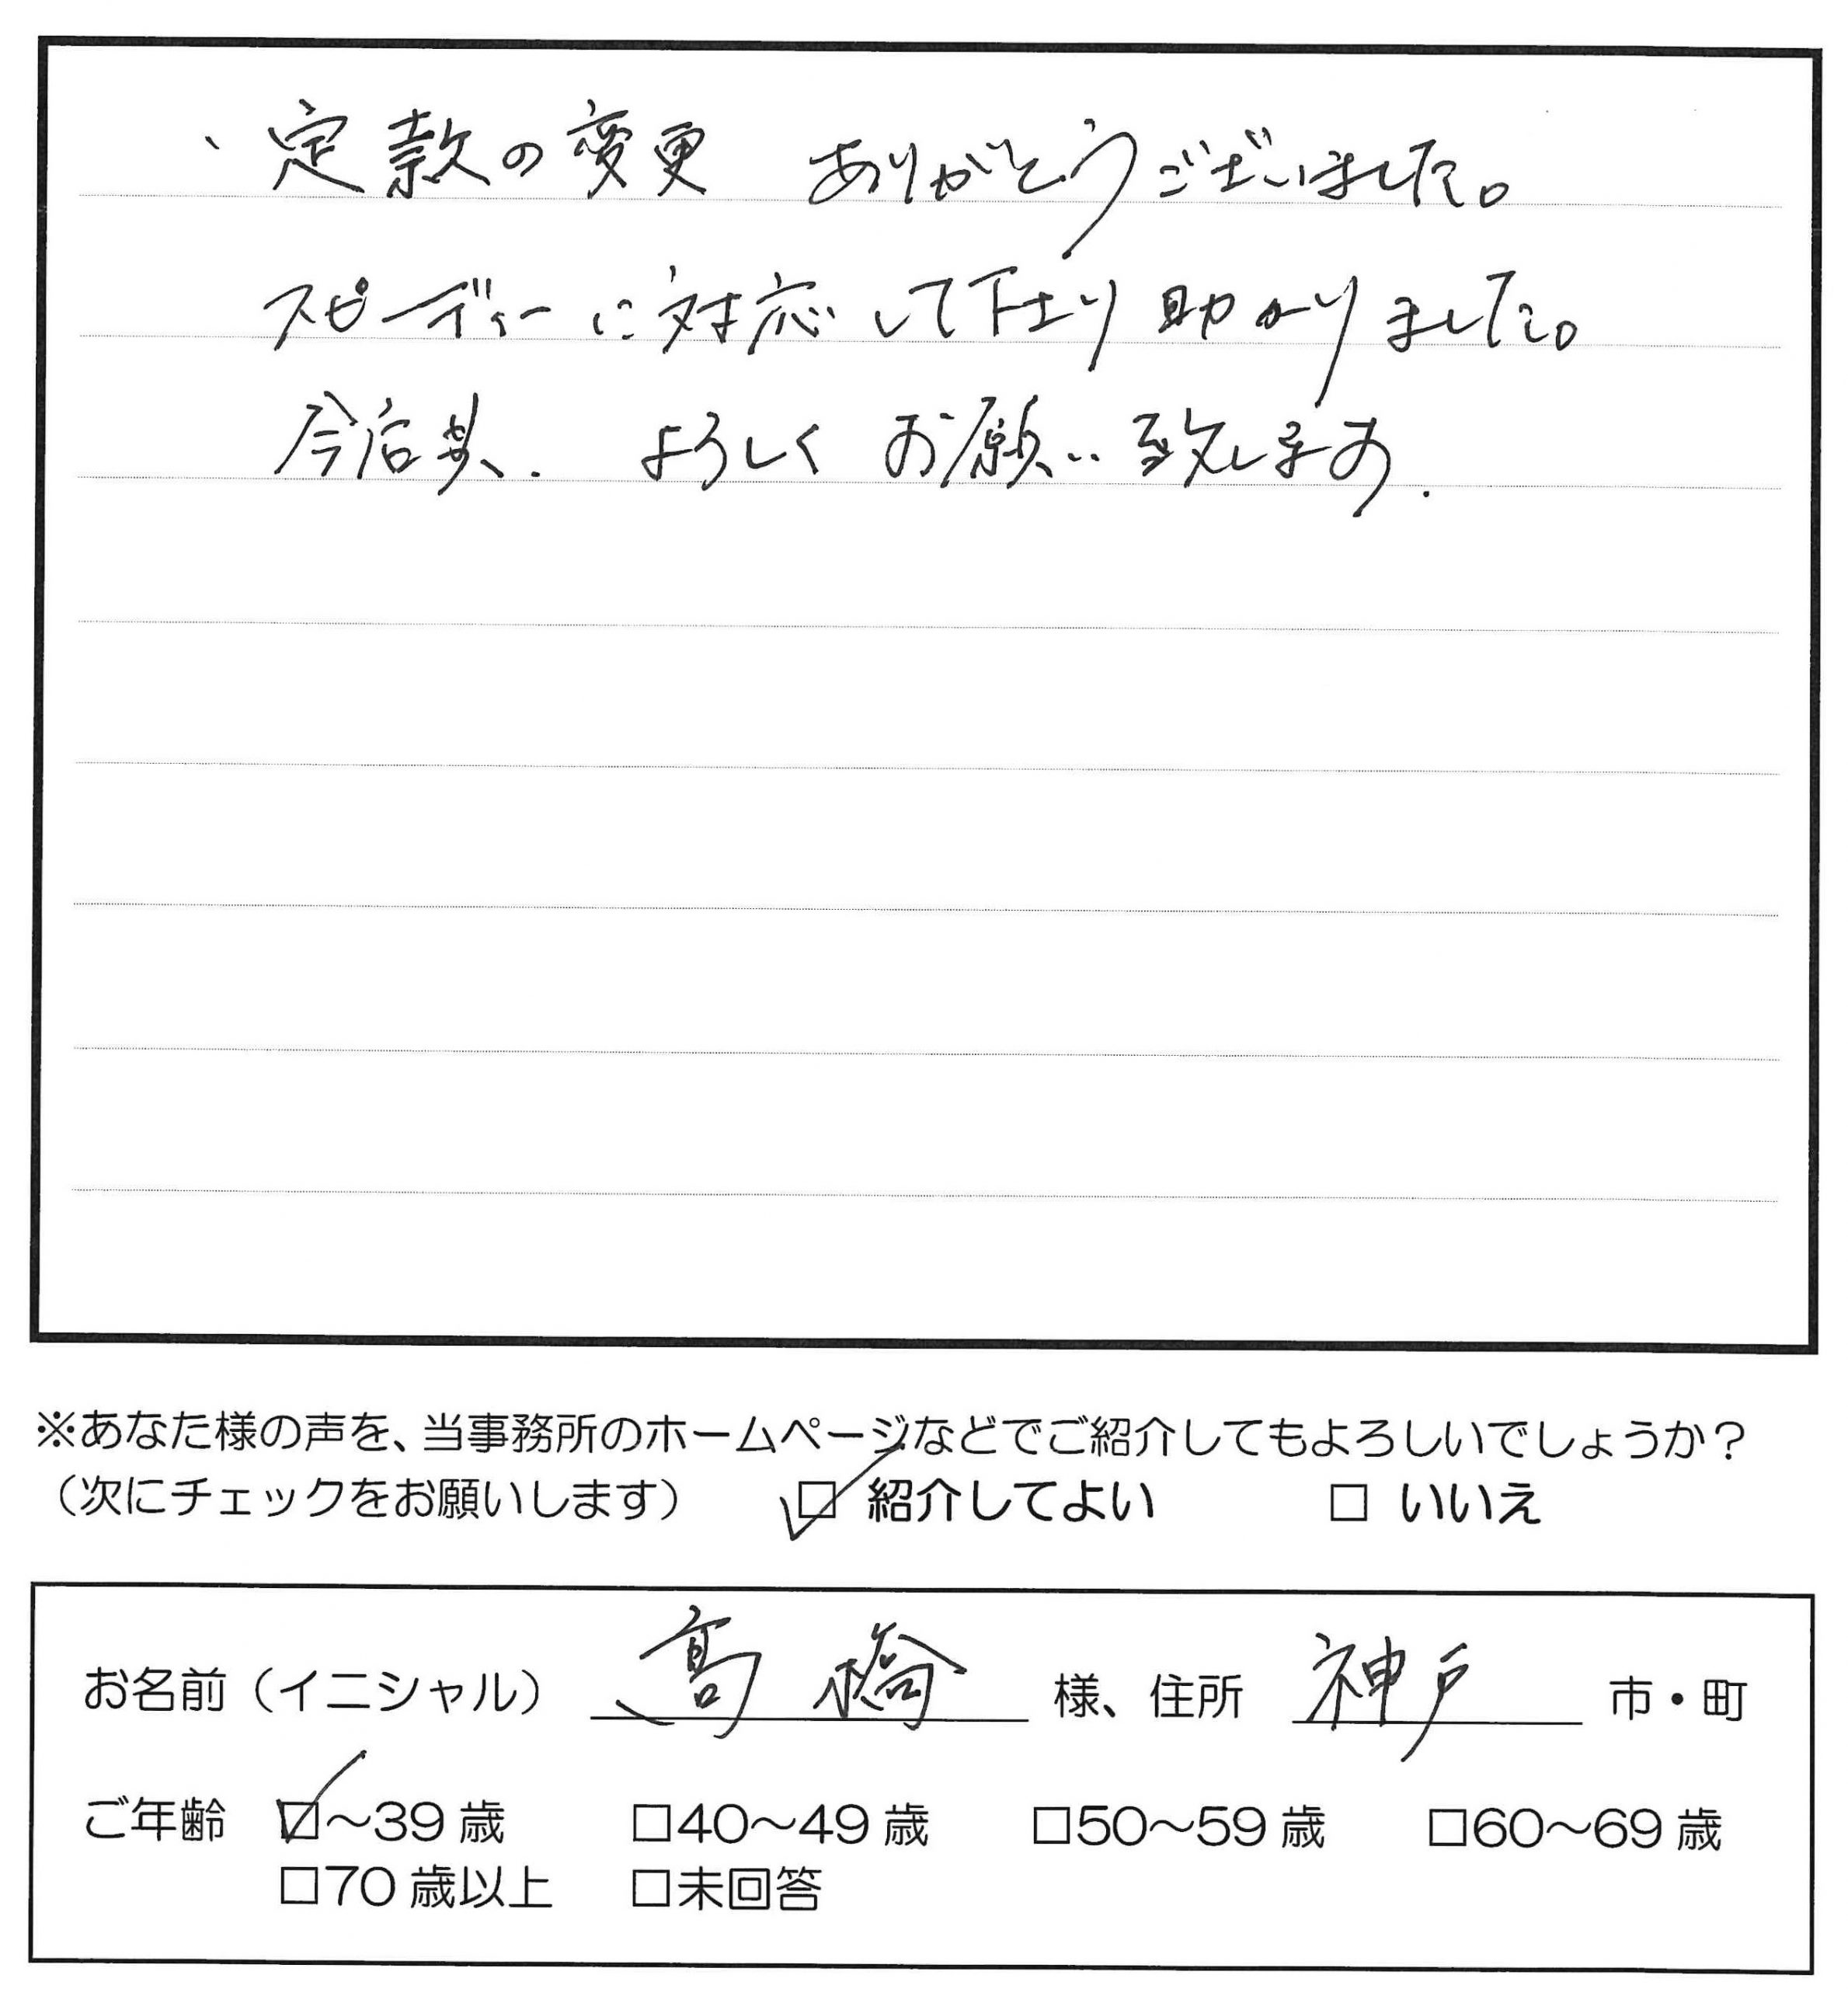 ・定款の変更 ありがとうございました。
スピーディーに対応して下さり助かりました。
今后共、よろしくお願い致します.
※あなた様の声を、当事務所のホームページなどでご紹介してもよろしいでしょうか?
(次にチェックをお願いします) ☑ 紹介してよい □ いいえ
お名前(イニシャル) 髙橋 様、住所 神戸 市・町
ご年齢 ☑~39歳 □40~49歳 □50~59歳 □60~69歳
□70歳以上 □未回答